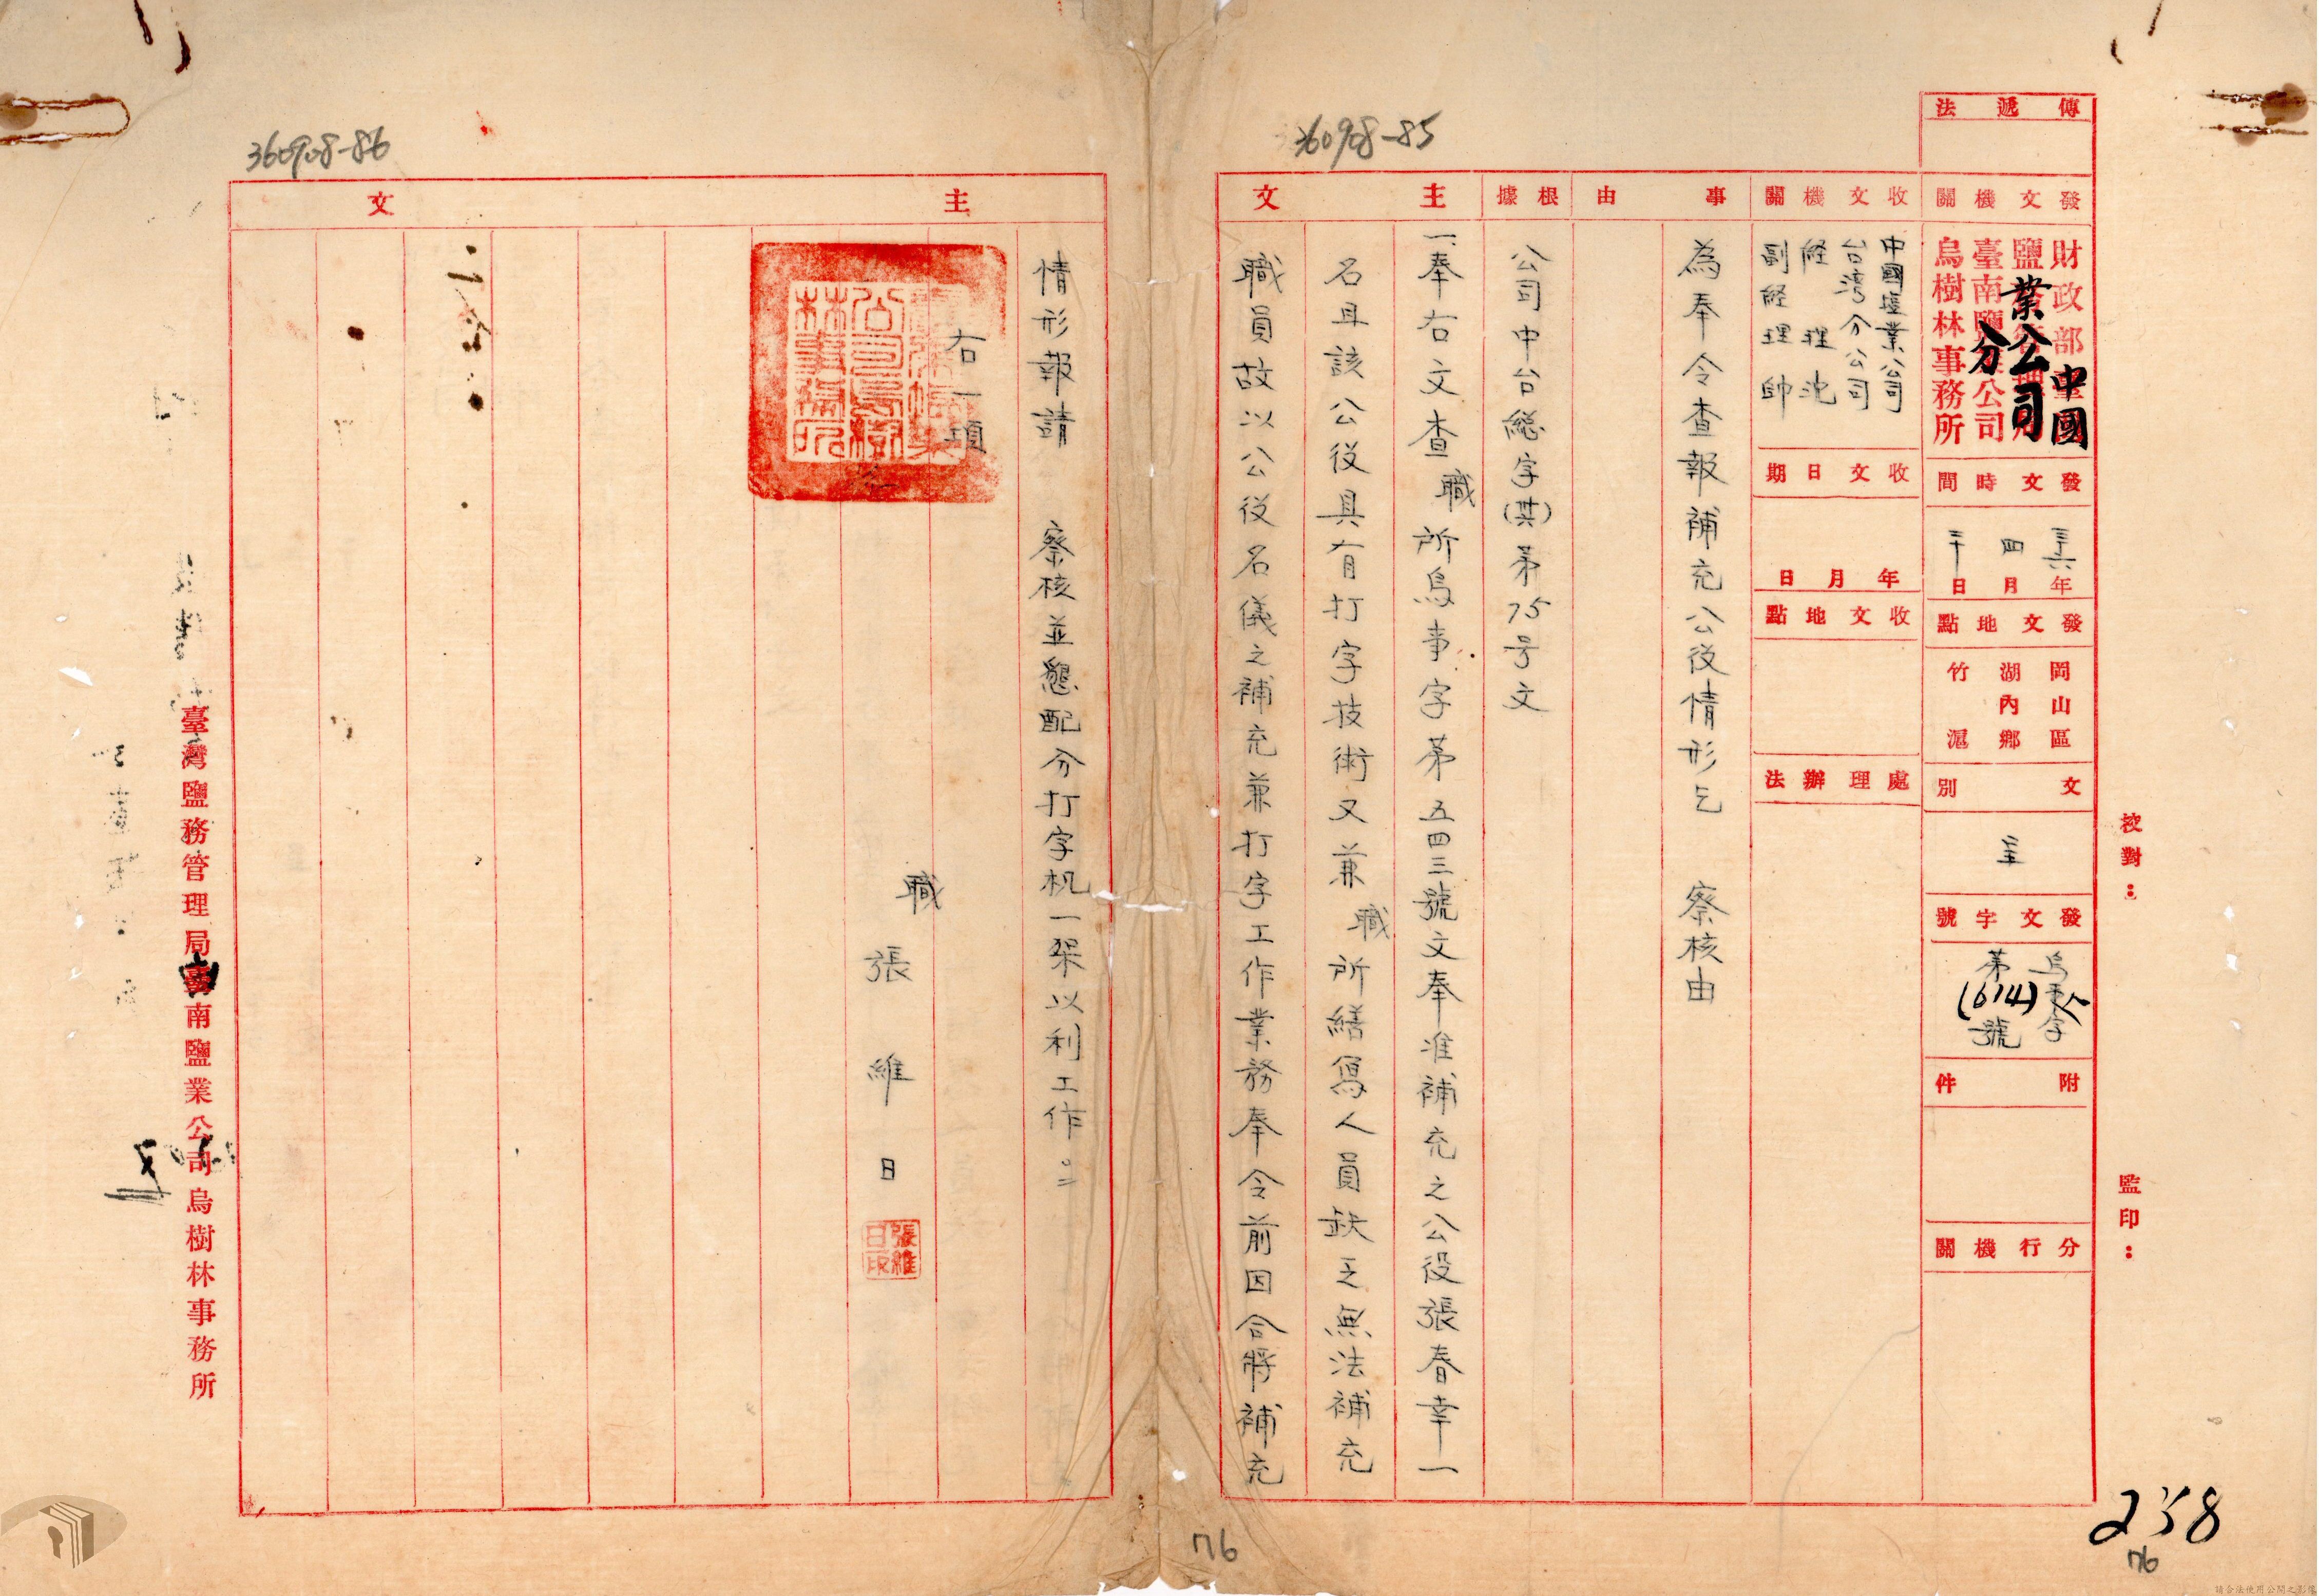 傳遞法
發文機關
財政部臺
鹽
臺南鹽 公司
烏樹林事務所
中國
業公司
分
發文時間
三六年
四月
三十日
發文地點
岡山區
湖內鄉
竹滬
文別
呈
發文字號
烏 人字
第(614)號
附件
分行機關
收文機關
中國塩業公司
台湾分公司
經理 沈
副經理 帥
收文日期
年月日
收文地點
處理辦法
事由
為奉令查報補充公役情形乞 察核由
根據
公司中台総字(其)第75号文
主文
一、奉右文查職所烏事字第五四三號文奉准補充之公役張春幸一
名且該公役具有打字技術又兼職所繕寫人員缺乏無法補充
職員故以公役名儀之補充兼打字工作業務奉令前因合將補充
校對：
監印：
360908-85
238
76
76
360908-86
主文
情形報請 察核並懇配分打字机一架以利工作
右一項
職
張維日
張維日印
臺灣鹽務管理局臺南鹽業公司烏樹林事務所
請合法使用公開之影像